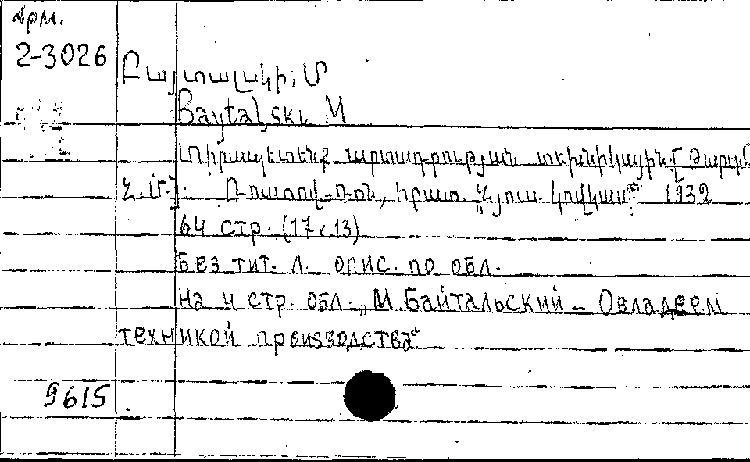 Арм.
2-3026
Բայտալսկի, Մ
Baytalski M
Տիրապետենք արտադրության տեխնիկային [Թարգմ.
Հ. Մ.]: Ռոստով-Դոն, հրատ. Հյուս. կովկաս 1932
64 стр. (17 x 13)
Без тит. л. опис. по обл.
на 4 стр. обл. „М. Байтальский – Овладеем
техникой производства“
9615